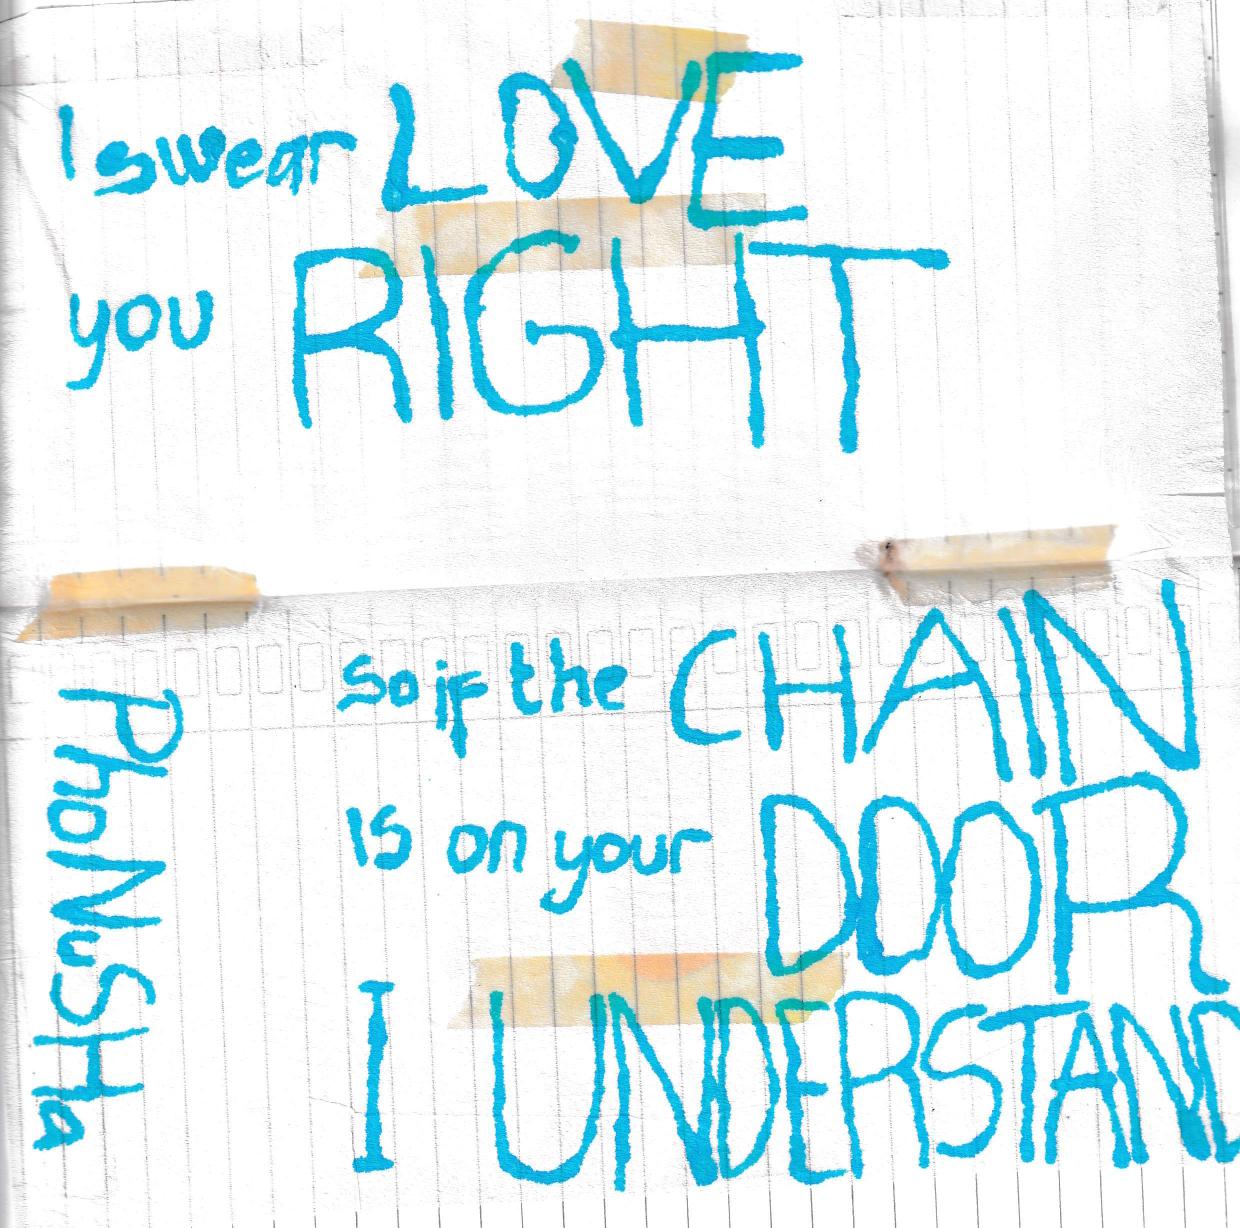 I swear LOVE
you RIGHT
So if the CHAIN
is on your DOOR
I UNDERSTAND
PhoNuSHa